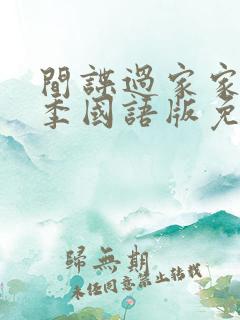 間諜過家家
季國語版免
歸無期
未任同意禁止轉載